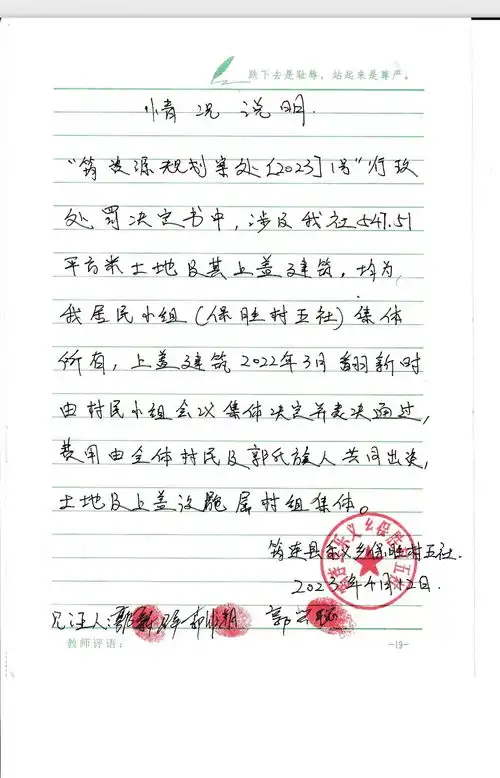 跌下去是耻辱，站起来是尊严。
情况说明.
“筠资源规划案处[2023]1号”行政
处罚决定书中，涉及我社547.51
平方米土地及其上盖建筑，均为
我居民小组（保胜村五社）集体
所有，上盖建筑2022年3月翻新时
由村民小组会议集体决定并表决通过，
费用由全体村民及郭氏族人共同出资，
土地及上盖设施属村组集体。
筠连县乐义乡保胜村五社.
2023年4月12日.
见证人：郭
郭
教师评语：
-19-